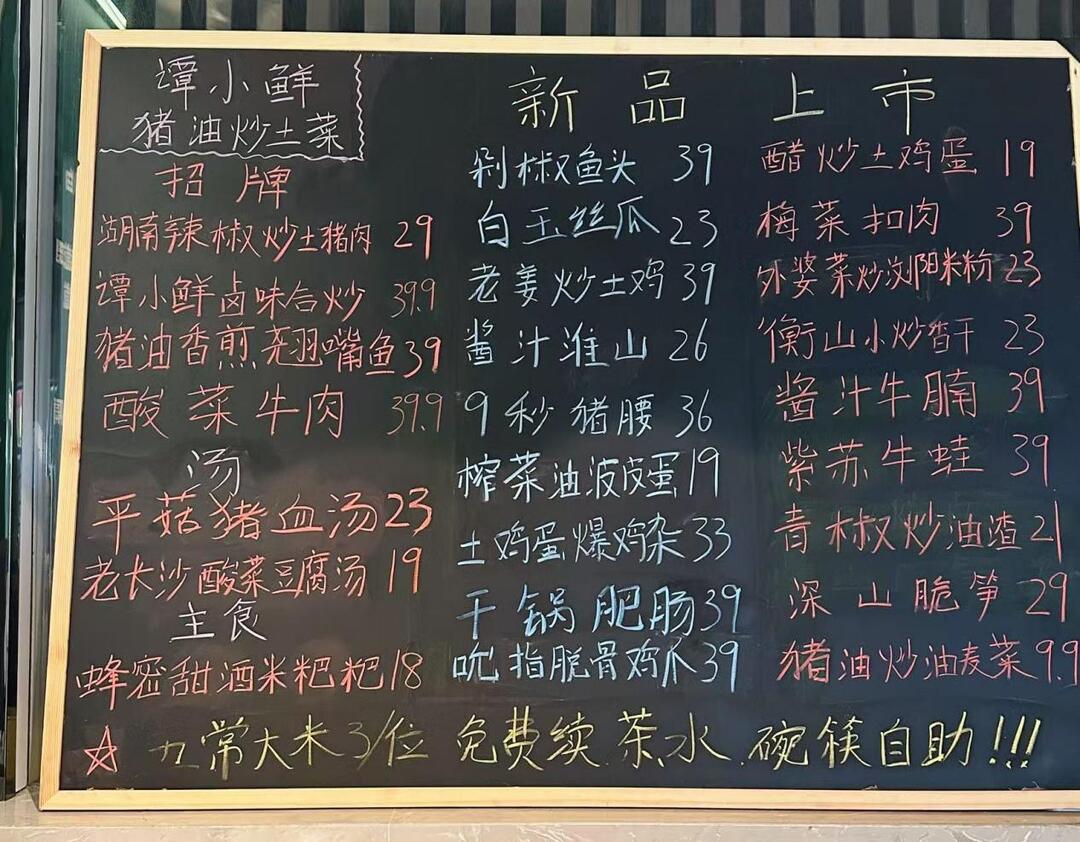 谭小鲜
猪油炒土菜
招牌
湖南辣椒炒土猪肉 29
谭小鲜卤味合炒 39.9
猪油香煎翘嘴鱼 39
酸菜牛肉 39.9
汤
平菇猪血汤 23
老长沙酸菜豆腐汤 19
主食
蜂密甜酒米粑粑 18
新品上市
剁椒鱼头 39
白玉丝瓜 23
老姜炒土鸡 39
酱汁淮山 26
9秒猪腰 36
榨菜油波皮蛋 19
土鸡蛋爆鸡杂 33
干锅肥肠 39
吮指脱骨鸡爪 39
醋炒土鸡蛋 19
梅菜扣肉 39
外婆菜炒浏阳米粉 23
衡山小炒香干 23
酱汁牛腩 39
紫苏牛蛙 39
青椒炒油渣 21
深山脆笋 29
猪油炒油麦菜 9.9
☆ 五常大米3/位 免费续茶水.碗筷自助!!!